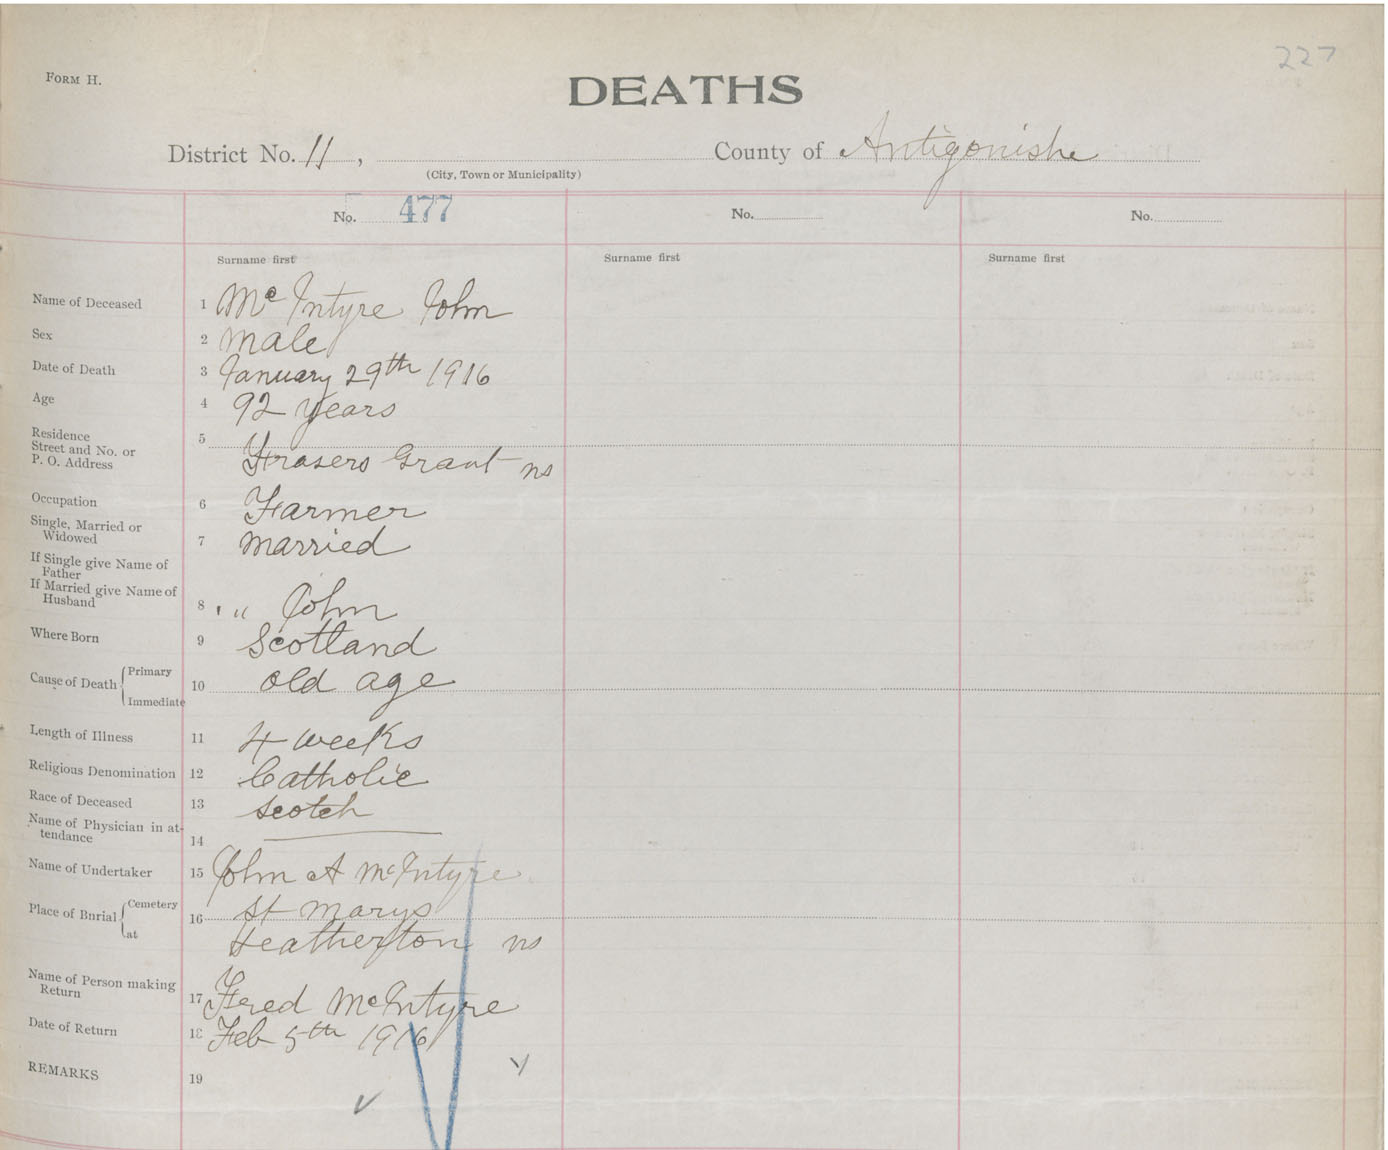 227
FORM H.
DEATHS
District No. 11, County of Antigonishe
(City, Town or Municipality)
No. 477 No. No.
Surname first Surname first Surname first
Name of Deceased 1 Mc Intyre John
Sex 2 male
Date of Death 3 January 29th 1916
Age 4 92 years
Residence 5
Street and No. or
P. O. Address Frasers Grant ns
Occupation 6 Farmer
Single, Married or
Widowed 7 married
If Single give Name of
Father
If Married give Name of
Husband 8 " " John
Where Born 9 Scotland
Cause of Death Primary 10 old age
Immediate
Length of Illness 11 4 weeks
Religious Denomination 12 Catholic
Race of Deceased 13 Scotch
Name of Physician in at-
tendance 14
Name of Undertaker 15 John A McIntyre
Place of Burial Cemetery 16 St Marys
at Heatherton ns
Name of Person making
Return 17 Fred McIntyre
Date of Return 18 Feb 5th 1916
REMARKS 19